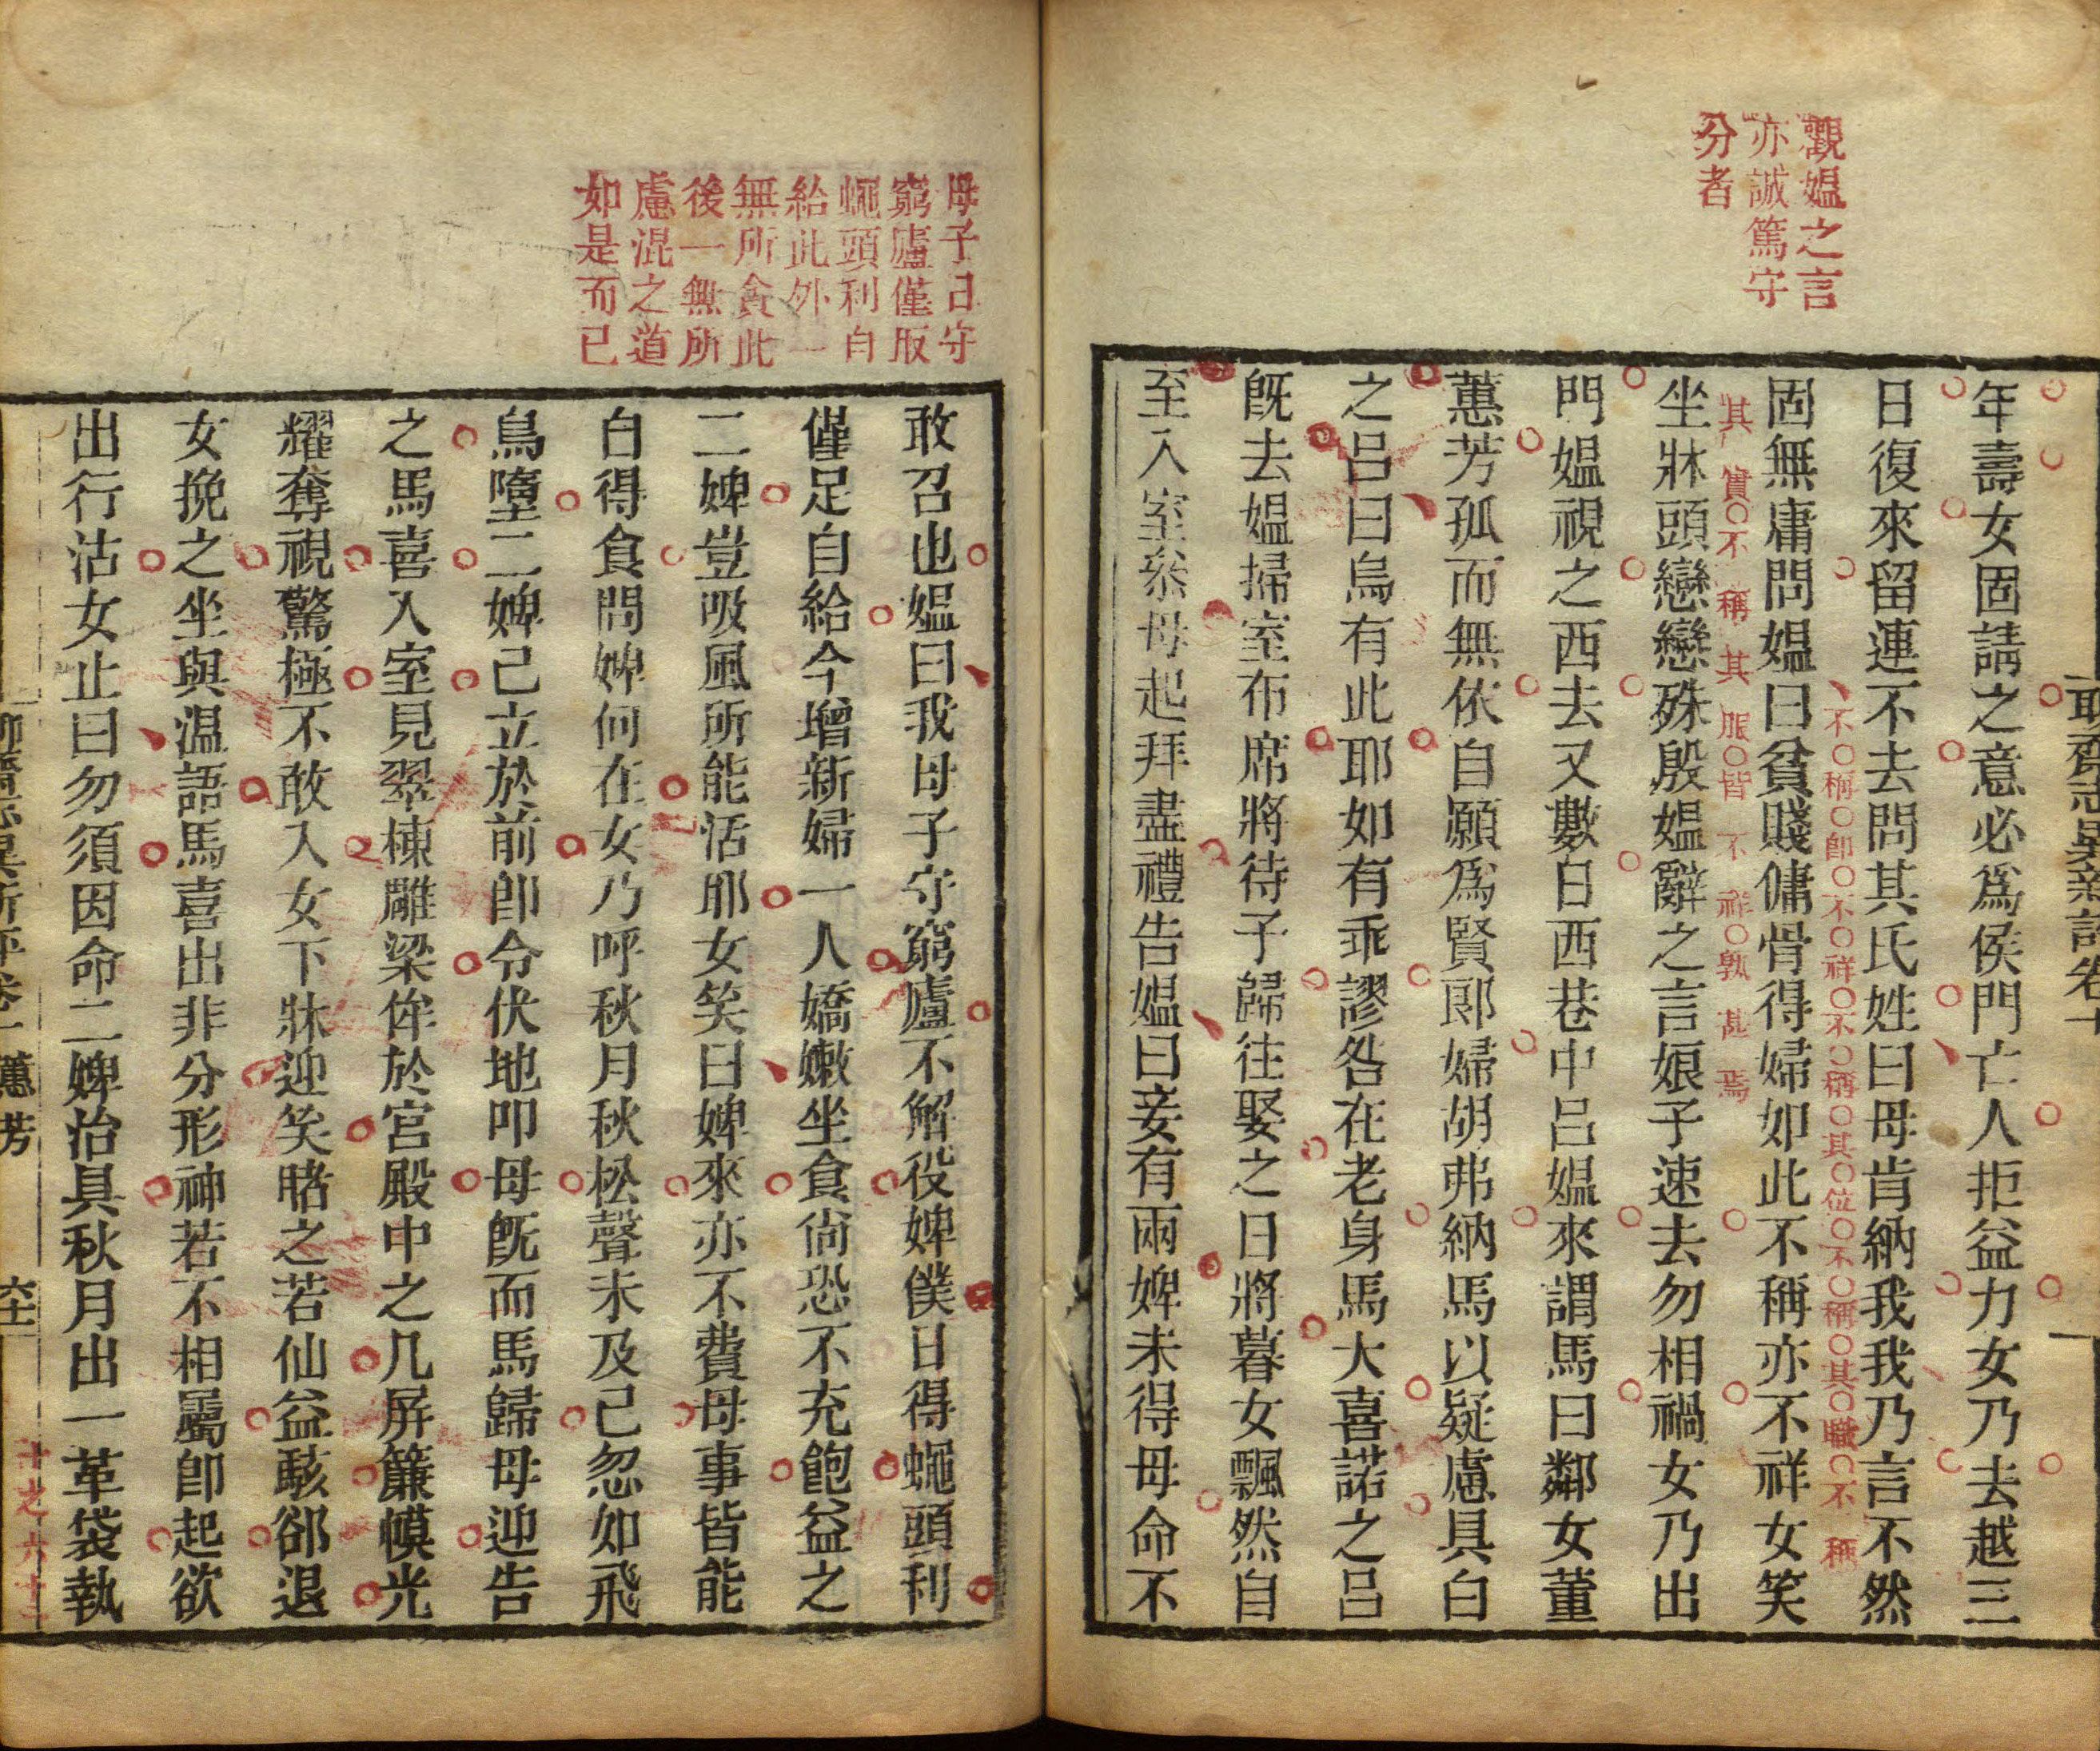 觀媼之言
亦誠篤守
分者
年壽女固請之意必爲侯門亡人拒益力女乃去越三
日復來留連不去問其氏姓曰母肯納我我乃言不然
不稱卽不祥不稱其位不稱其職不稱
固無庸問媼曰貧賤傭骨得婦如此不稱亦不祥女笑
其實不稱其服皆不祥孰甚焉
坐牀頭戀戀殊殷媼辭之言娘子速去勿相禍女乃出
門媼視之西去又數日西巷中呂媼來謂馬曰鄰女董
蕙芳孤而無依自願爲賢郎婦胡弗納馬以疑慮具白
之呂曰烏有此耶如有乖謬咎在老身馬大喜諾之呂
旣去媼掃室布席將待子歸往娶之日將暮女飄然自
至入室叅母起拜盡禮告媼曰妾有兩婢未得母命不
母子己守
窮廬僅販
蝇頭利自
給此外一
無所貪此
後一無所
慮混之道
如是而已
敢召也媼曰我母子守窮廬不解役婢僕日得蝇頭利
僅足自給今增新婦一人嬌嫩坐食尙恐不充飽益之
二婢豈吸風所能活耶女笑曰婢來亦不費母事皆能
自得食問婢何在女乃呼秋月秋松聲未及己忽如飛
鳥墮二婢己立於前卽令伏地叩母旣而馬歸母迎告
之馬喜入室見翠棟雕梁侔於宮殿中之几屏簾幙光
耀奪視驚極不敢入女下牀迎笑睹之若仙益駭郤退
女挽之坐與溫語馬喜出非分形神若不相屬卽起欲
出行沽女止曰勿須因命二婢治具秋月出一革袋執
蕙芳
十之六十二